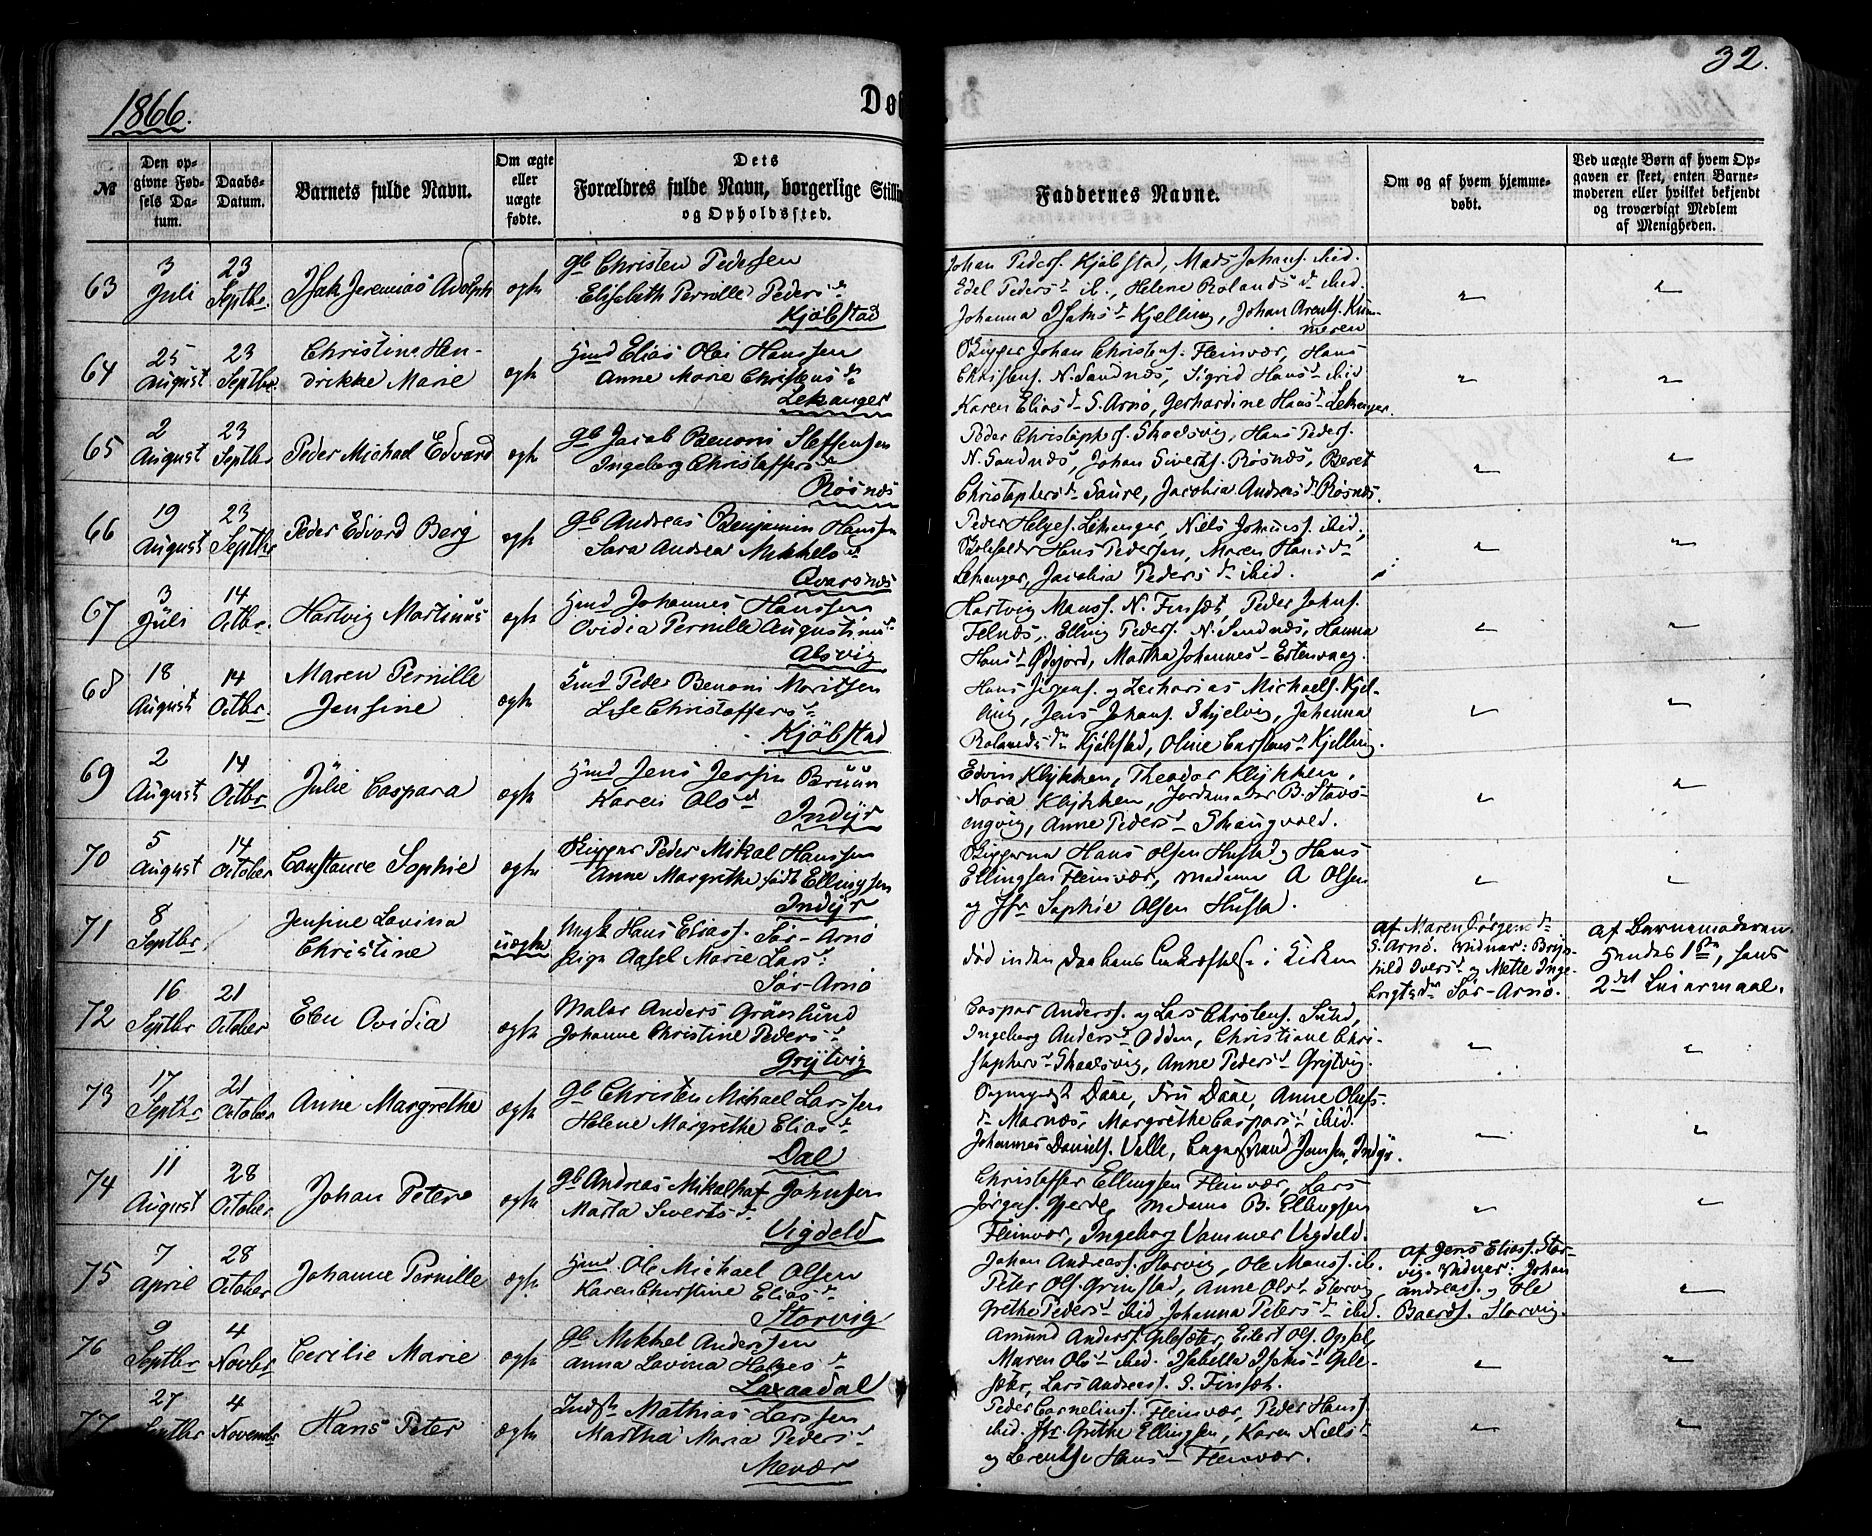 1866.
Dø
32.
№
Den op-
givne Fød-
sels Da-
tum.
Daabs-
Datum.
Barnets fulde Navn.
Om ægte
eller
uægte
fødte.
Dets
Forældres fulde Navn, borgerlige Still
og Opholdssted.
Faddernes Navne.
Om og af hvem hjemme-
døbt.
Ved uægte Børn af hvem Op-
gaven er skeet, enten Barne-
moderen eller hvilket bekjendt
og troværdigt Medlem
af Menigheden.
63
3
Juli
23
Septbr.
Isak Jeremias Adolph
ægte
gb Christen Pedersen
Elisabeth Pernille Pedersd
Kjøbstad
Johan Peders. Kjøbstad, Mads Johans. ibid.
Edel Pedersd ib., Helene Rolandsd ibid.
Johanna Isaksd Kjelling, Johan Arents. Kun-
meren
64
25
August
23
Septbr.
Christine Hen-
drikke Marie
ægte
Hmd Elias Olai Hanssen
Anne Marie Christensd
Lekanger
Skipper Johan Christens. Fleinvær, Hans
Christens. N. Sandnæs, Sigrid Hansd ibid
Karen Eliasd S. Arnø, Gerhardine Hansd Lekanger.
65
2
August
23
Septbr
Peder Michael Edvard
ægte
gb Jacob Benoni Steffensen
Ingeborg Christoffersd
Røsnæs
Peder Christophers. Skaosvig, Hans Peders.
N. Sandnæs, Johan Siverts. Røsnæs, Beret
Christophersd Saure, Jacobia Andreasd Røsnæs.
66
19
August
23
Septbr
Peder Edvard Berg
ægte
gb Andreas Benjamin Hanssen
Sara Andrea Mikkelsd
Qvarsnæs
Peder Helges. Lekanger, Niels Johans. ibid,
Hans Pedersen, Maren Hansd
Lekanger, Jacobia Pedersd ibid.
67
3
Juli
14
Octbr.
Hartvig Martinus
ægte
Hmd Johannes Hanssen
Ovidia Pernille Augustinusd
Alsvig
Hartvig Mans. N. Finsæt, Peder Johns.
Felnæs, Elling Peders. N. Sandnæs, Hanna
Hansd Ødejord, Martha Johannesd Estensvaag.
68
18
August
14
Octbr.
Maren Pernille
Jensine
ægte
Hmd Peder Benoni Moritsen
Lise Christoffersd
Kjøbstad
Hans Jørgens. og Zacharias Michaels. Kjel-
ling, Jens Johans. Skjelvig, Johanna
Rolandsd Kjøbstad, Oline Carstensd Kjelling.
69
2
August
14
Octbr
Julie Caspara
ægte
Hmd Jens Jersin Bruun
Karen Olsd
Indyr
Edvin Klykken, Theodor Klykken,
Nora Klykken, Jordemoder B. Stavs-
engvig, Anne Pedersd Skaugvold.
70
5
August
14
October
Constance Sophie
ægte
Skipper Peder Mikal Hanssen
Anne Margrethe født Ellingsen
Indyr
Skipperne Hans Olsen Husta og Hans
Ellingsen Fleinvær, Madame A Olsen
og Jfr Sophie Olsen Husta.
71
8
Septbr.
Jensine Lovina
Christine
uægte
Ungk Hans Elias. Sør-Arnø
Pige Aasel Marie Larsd
Sør-Arnø
død inden Daabens Bekræftelse i Kirken
af Maren Jørgensd
S. Arnø. Vidner: Bryn-
hild Iversd og Mette Inge-
brigtsd Sør-Arnø.
af Barnemoderen.
Hendes 1ste, hans
2det Leiermaal.
72
16
Septbr
21
October
Elen Ovidia
ægte
Maler Anders Grønlund
Johanne Christine Pedersd
Grytvig
Caspar Anders. og Lars Christens. Sund,
Ingeborg Andersd Odden, Christiane Chri-
stophersd Skaosvig, Anne Pedersd Grytvig.
73
17
Septbr
21
October
Anne Margrethe
ægte
gb Christen Michael Larssen
Helene Margrethe Eliasd
Dal
Sognepræst Daae, Fru Daae, Anne Olufs-
d Marnæs, Margrethe Caspersd ibid.
Johannes Daniels. Valle, Jensen, Indyr.
74
11
August
28
October
Johan Peter
ægte
gb Andreas Mikal Johnsen
Marta Sivertsd
Vigdeld
Christoffer Ellingsen Fleinvær, Lars
Jørgens. Gjerde, Madame B. Ellingsen
Fleinvær, Ingeborg Vammer Vigdeld.
75
7
April
28
October
Johanne Pernille
ægte
Hmd Ole Michael Olsen
Karen Christine Eliasd
Storvig
Johan Andreass. Storvig, Ole Mans. ib.
Peter Ols. Grimstad, Anne Olsd Storvig
Grethe Pedersd ibid Johanna Petersd ibid.
af Jens Elias. Stor-
vig. Vidner: Johan
Andreass. og Ole
Baards. Storvig.
76
9
Septbr
4
Novbr
Cecilie Marie
ægte
gb Mikkel Anderssen
Anna Lovina Helgesd
Laxaadal
Amund Anders. Oplesæter, Eilert Ols. Opsal,
Maren Olsd ibid. Isabella Isaksd Ople-
sæter, Lars Andreass. S. Finsæt.
77
27
Septbr
4
Novembr
Hans Peter
ægte
Indst Mathias Larssen
Martha Maria Pedersd
Mevær
Peder Cornelius. Fleinvær, Peder Hans.
ibid. Jfr. Grethe Ellingsen, Karen Nielsd
og Lorentse Hansd Fleinvær.